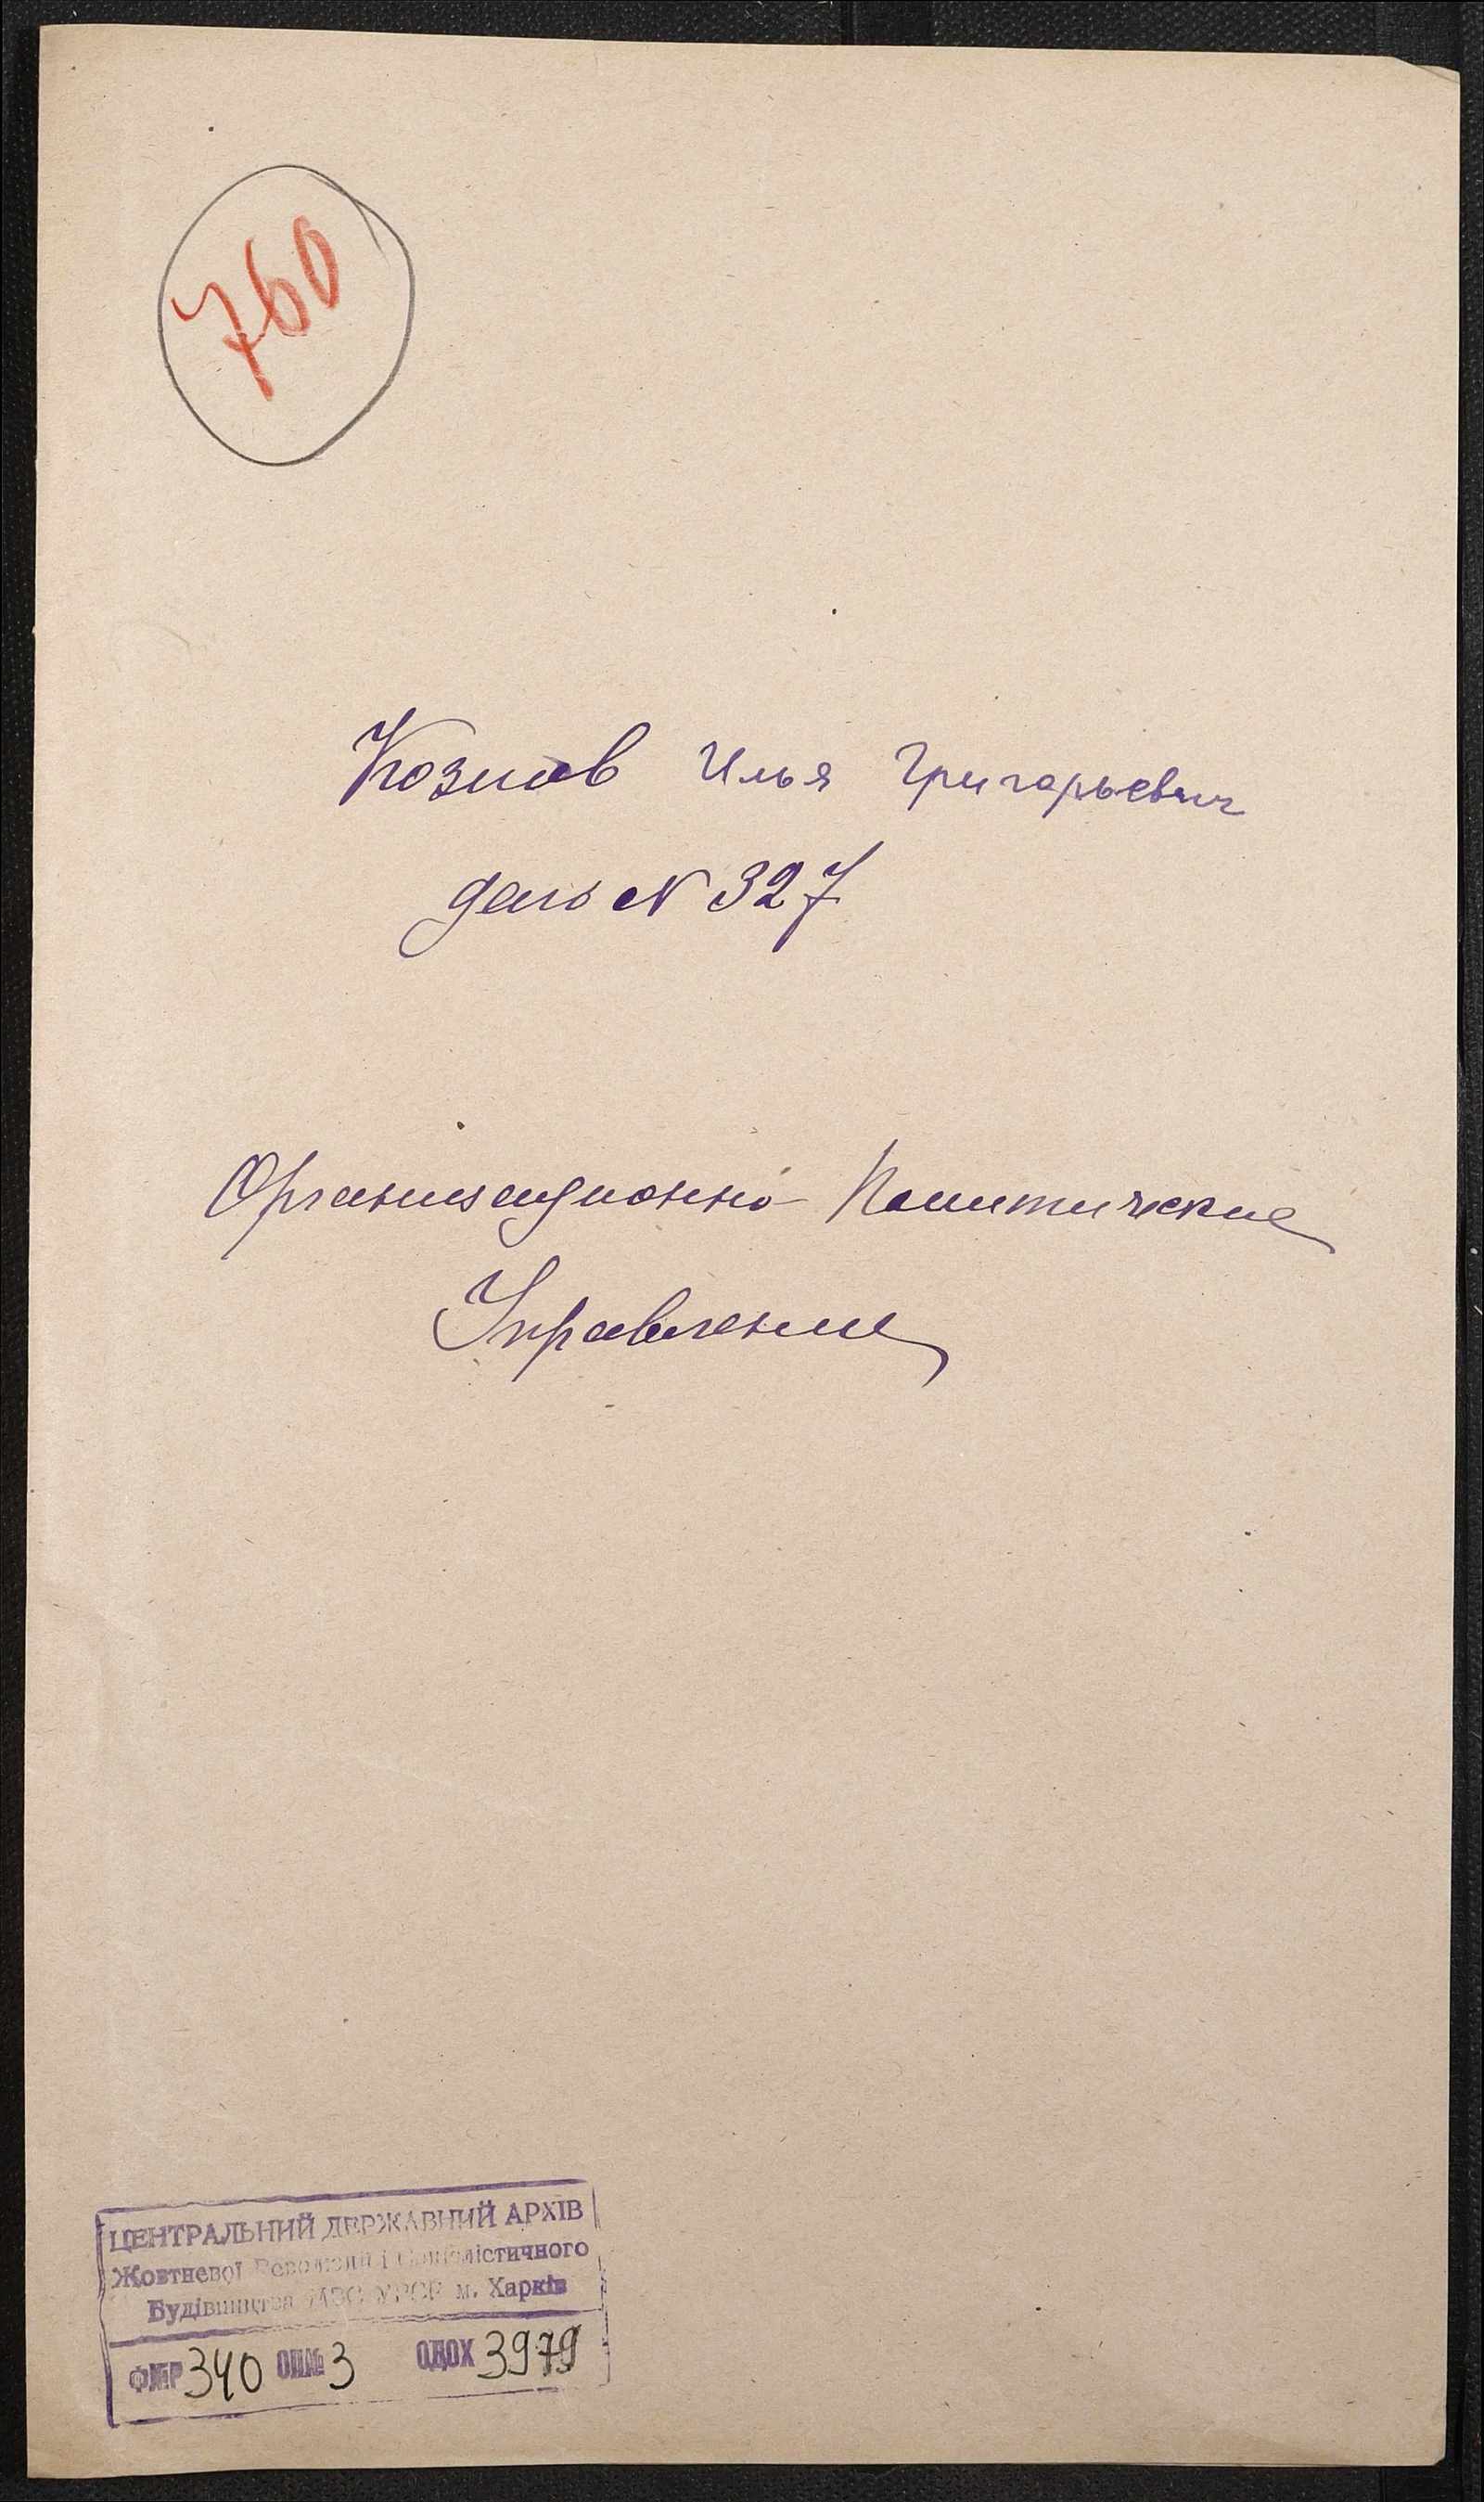 760
Козлов Илья Григорьевич
дело N 327
Организационно-Политические
Управление
ЦЕНТРАЛЬНИЙ ДЕРЖАВНИЙ АРХІВ
Жовтневої Революції і Соціалістичного
Будівництва УРСР м. Харків
Ф№Р 340 ОП№ 3 ОДОХ 3979